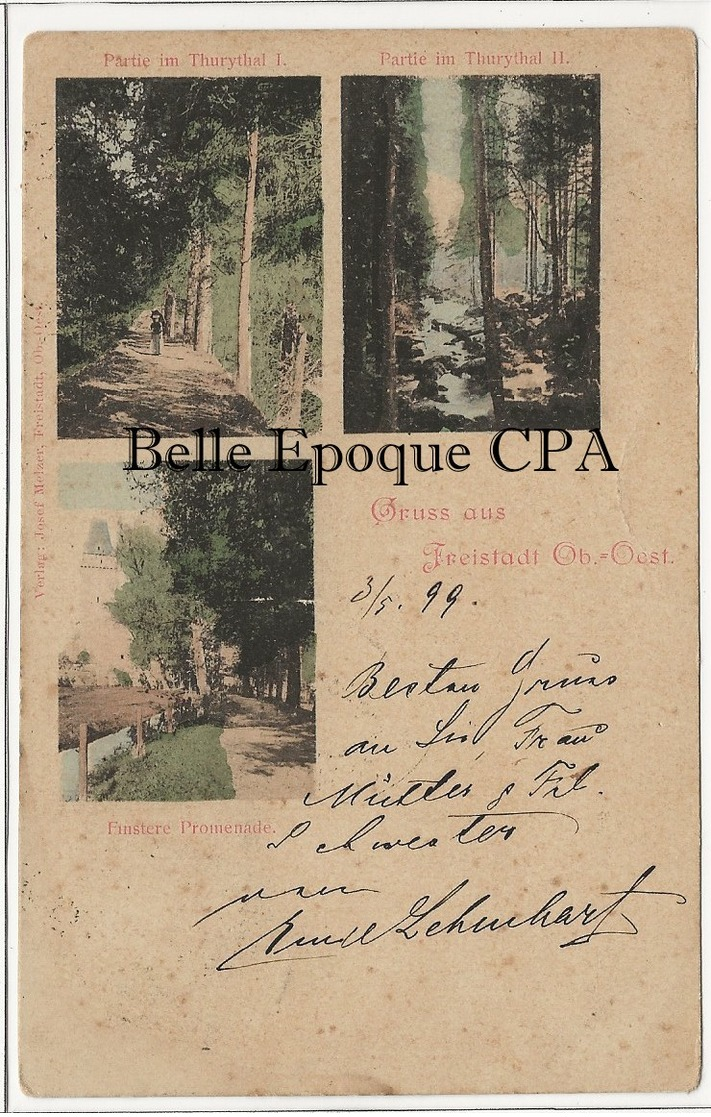 Partie im Thurythal I.
Partie im Thurythal II.
Verlag: Josef Melzer, Freistadt, Ob.-Oest.
Belle Epoque CPA
Gruss aus
Freistadt Ob.-Oest.
3/5. 99.
Besten Gruss
an Sie Frau
Mutter & Frl.
Schwester
von
Finstere Promenade.